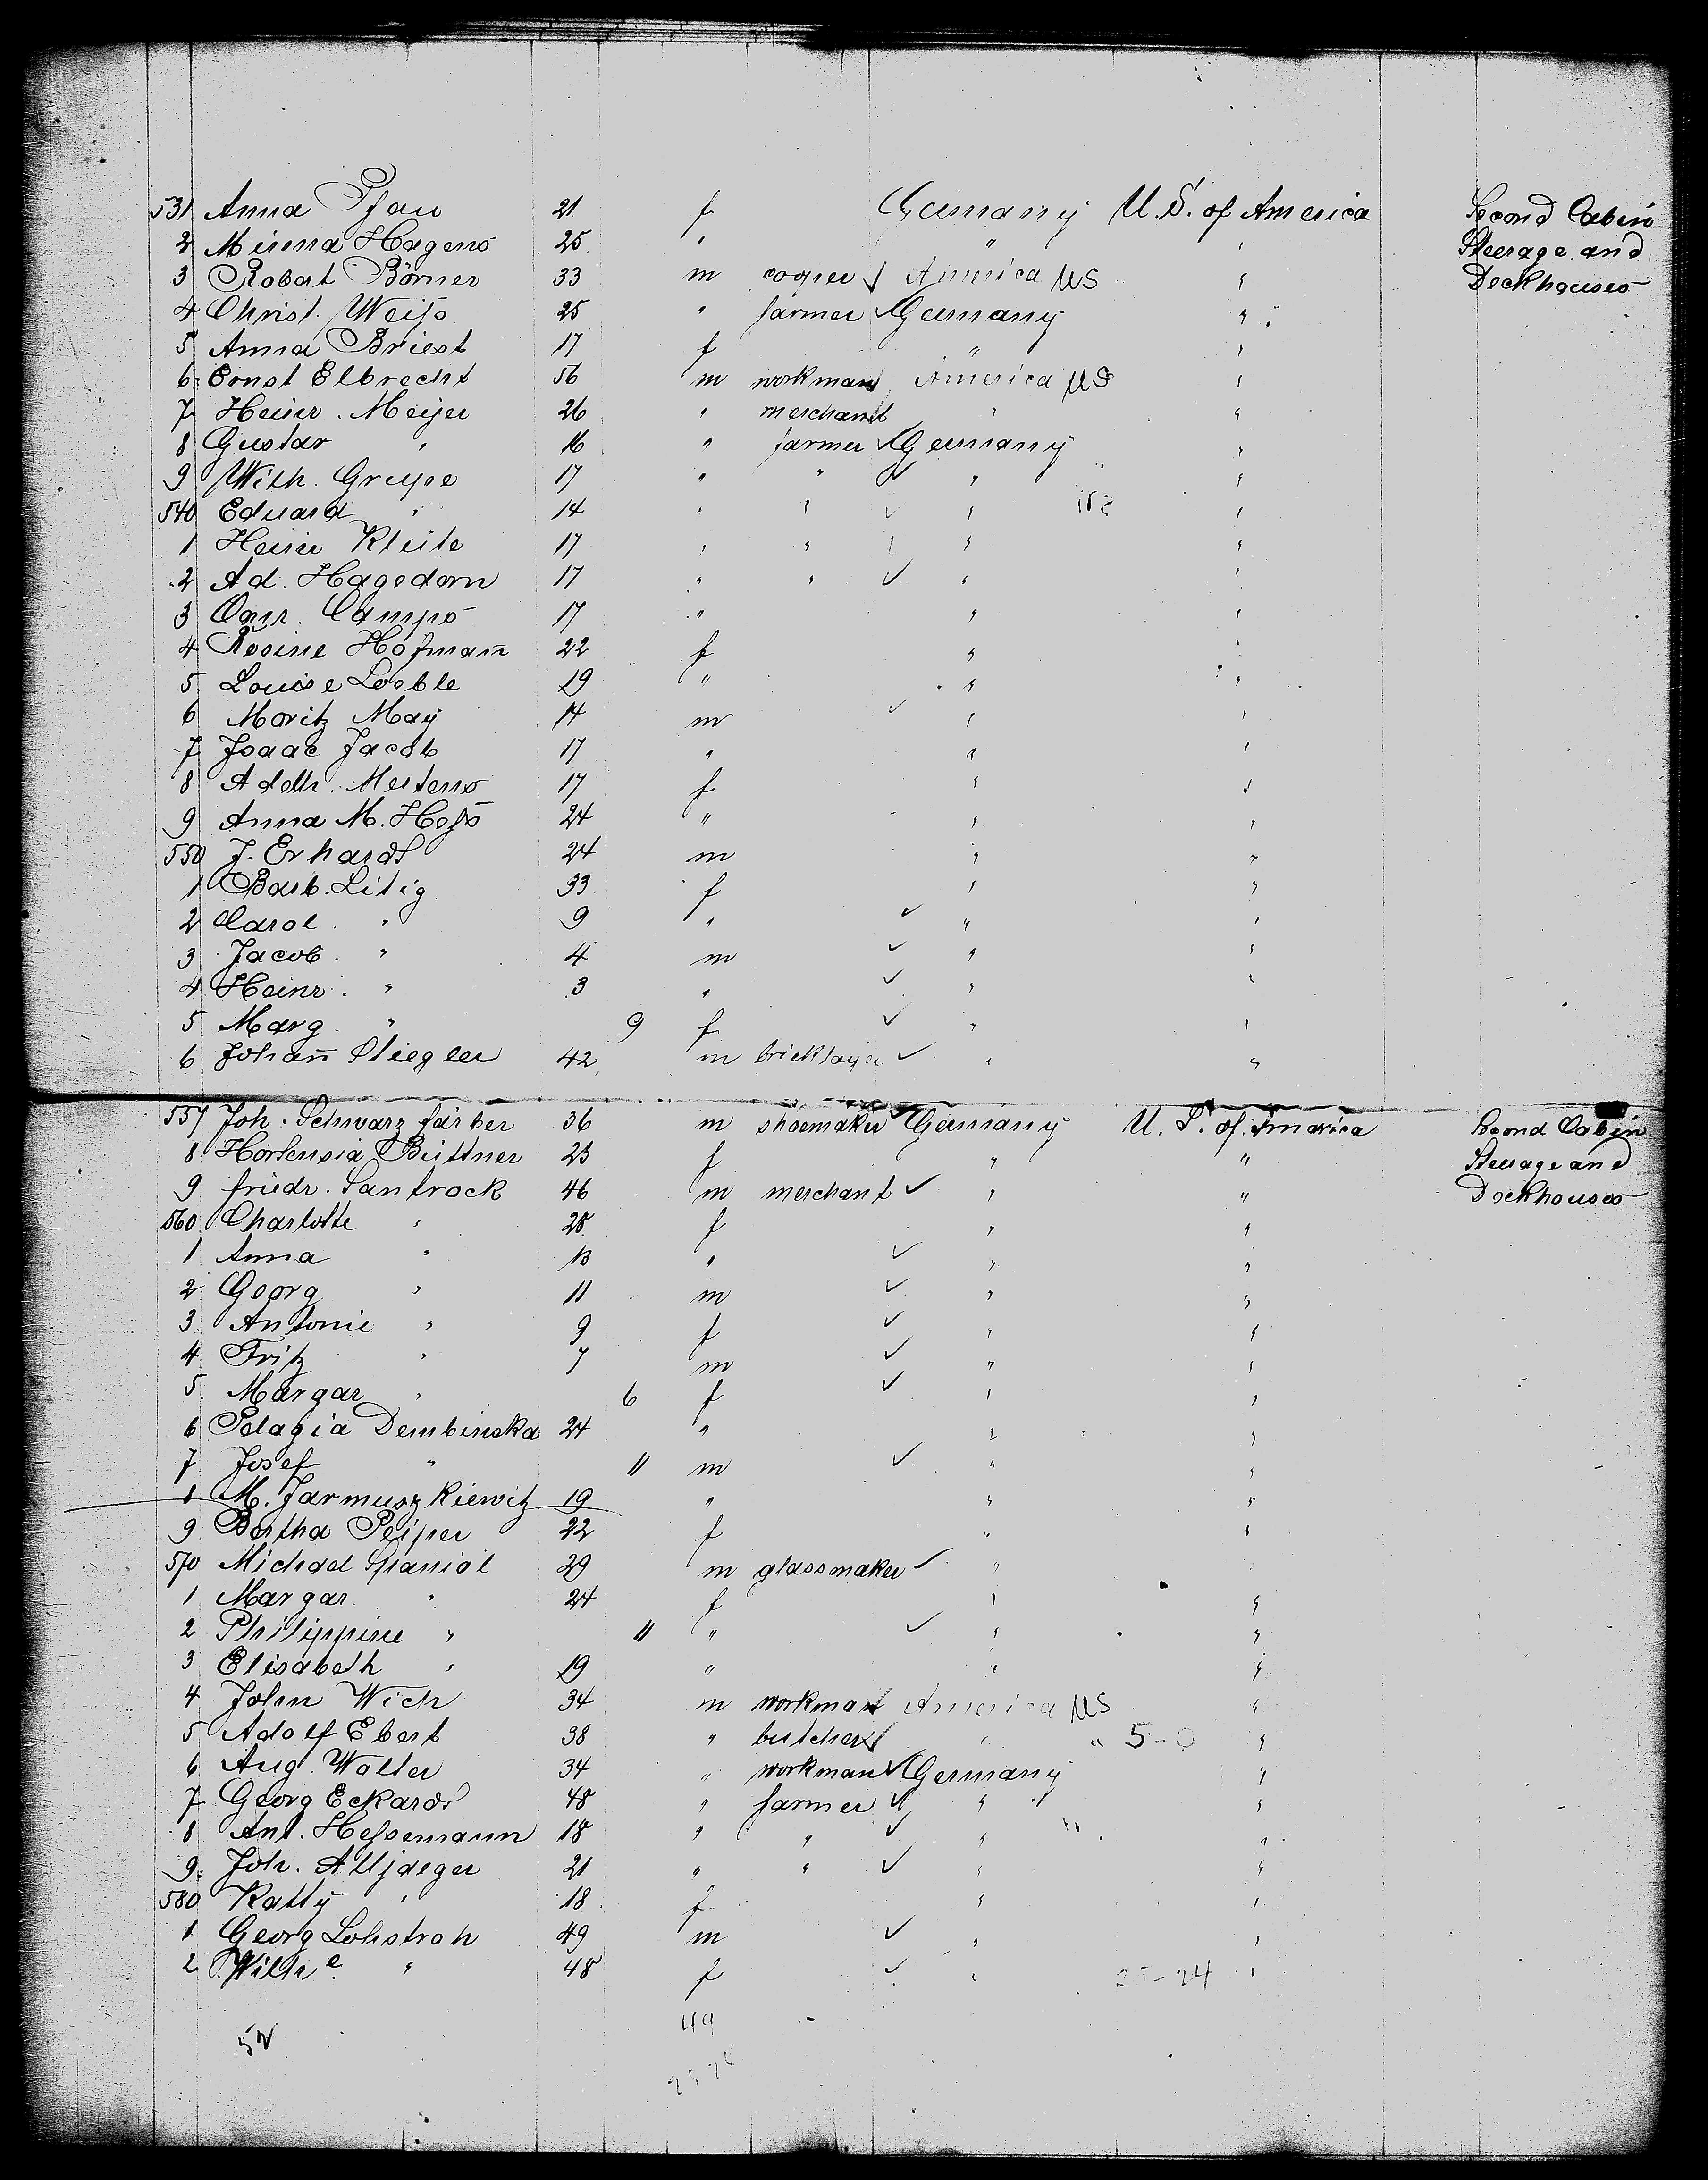 531 Anna Pfau 21 f Germany U.S. of America Second Cabin
2 Minna Hagens 25 " " " Steerage and
3 Robert Börner 33 m cooper America US " Deckhouses
4 Christ. Weiß 25 " farmer Germany "
5 Anna Briest 17 f " "
6 Ernst Elbrecht 56 m workman America US "
7 Heinr. Meijer 26 " merchant " "
8 Gustav " 16 " farmer Germany "
9 Wilh. Grupe 17 " " " "
540 Eduard " 14 " " " "
1 Heinr Kleite 17 " " " "
2 Ad. Hagedorn 17 " " " "
3 Conr. Campo 17 " " "
4 Rosine Hofmann̄ 22 f " "
5 Louise Loeble 19 " " "
6 Moritz May 14 m " "
7 Isaac Jacob 17 " " "
8 Adelh. Mertens 17 f " "
9 Anna M. Heß 24 " " "
550 J. Erhardt 24 m " "
1 Barb. Litig 33 f " "
2 Carol. " 9 " " "
3 Jacob. " 4 m " "
4 Heinr. " 3 " " "
5 Marg. " 9 f " "
6 Johan̄ Stiegler 42 m bricklayer " "
557 Joh. Schwarzfärber 36 m shoemaker Germany U.S. of America Second Cabin
8 Hortensia Büttner 23 f " " Steerage and
9 Friedr. Santrock 46 m merchant " " Deckhouses
560 Charlotte " 28 f " "
1 Anna " 13 " " "
2 Georg " 11 m " "
3 Antonie " 9 f " "
4 Fritz " 7 m " "
5. Margar " 6 f " "
6 Pelagia Dembinska 24 " " "
7 Josef " 11 m " "
8 M. Jarmuszkiewitz 19 " " "
9 Bertha Peiper 22 f " "
570 Michael Spaniol 29 m glassmaker "
1 Margar. " 24 f " "
2 Philippine " 11 " " "
3 Elisabeth " 19 " " "
4 John Wich 34 m workman America US "
5 Adolf Ebert 38 " butcher " " 5-0 "
6 Aug. Walter 34 " workman Germany "
7 Georg Eckardt 48 " farmer " "
8 Ant. Heßemann 18 " " " "
9. Joh. Alljaeger 21 " " " "
580 Katty " 18 f " "
1 Georg Lohstroh 49 m " "
2 Wilhe. " 48 f " 25-24 "
52 49
25-24